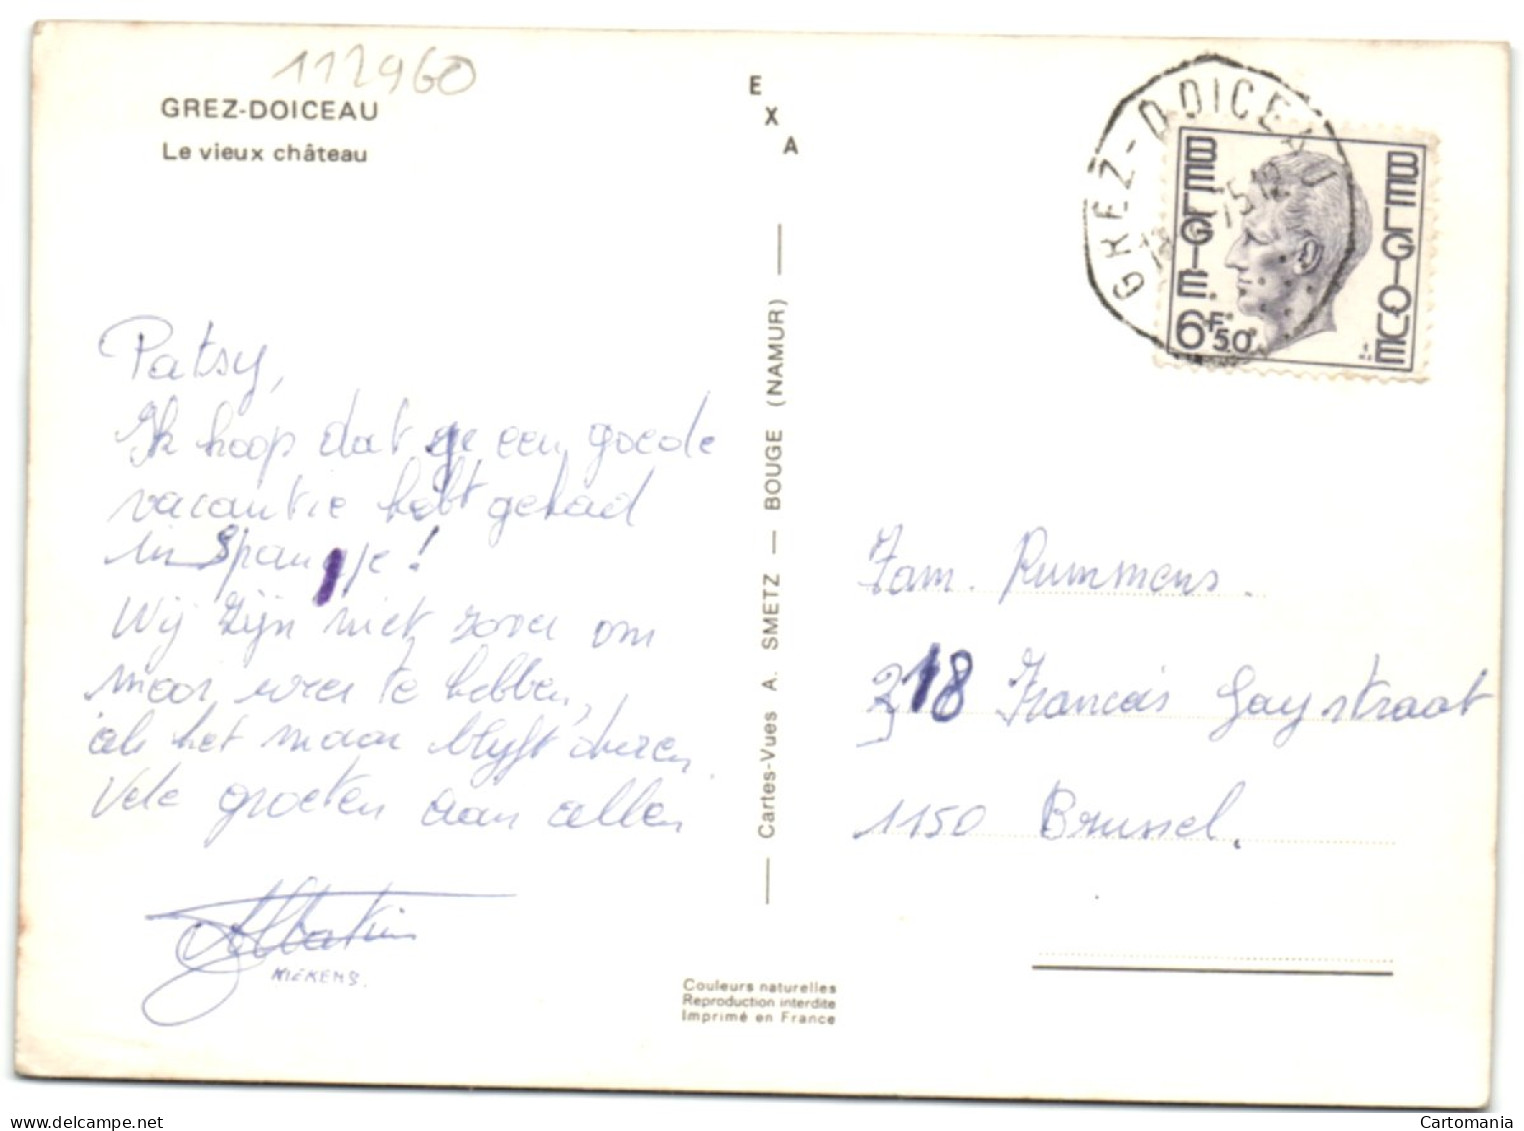 112960
GREZ-DOICEAU
Le vieux château
EXA
GREZ-DOICEAU
BELGIË
BELGIQUE
6F50
Patsy,
Ik hoop dat ge een goede
vacantie hebt gehad
in Spanje!
Wij zijn niet zover om
mooi weer te hebben,
als het maar blijft duren.
Vele groeten aan allen
NIEKENS.
Cartes-Vues A. SMETZ — BOUGE (NAMUR)
Fam. Rummens.
218 Francois Gay straat
1150 Brussel.
Couleurs naturelles
Reproduction interdite
Imprimé en France
delcampe.net
Cartomania